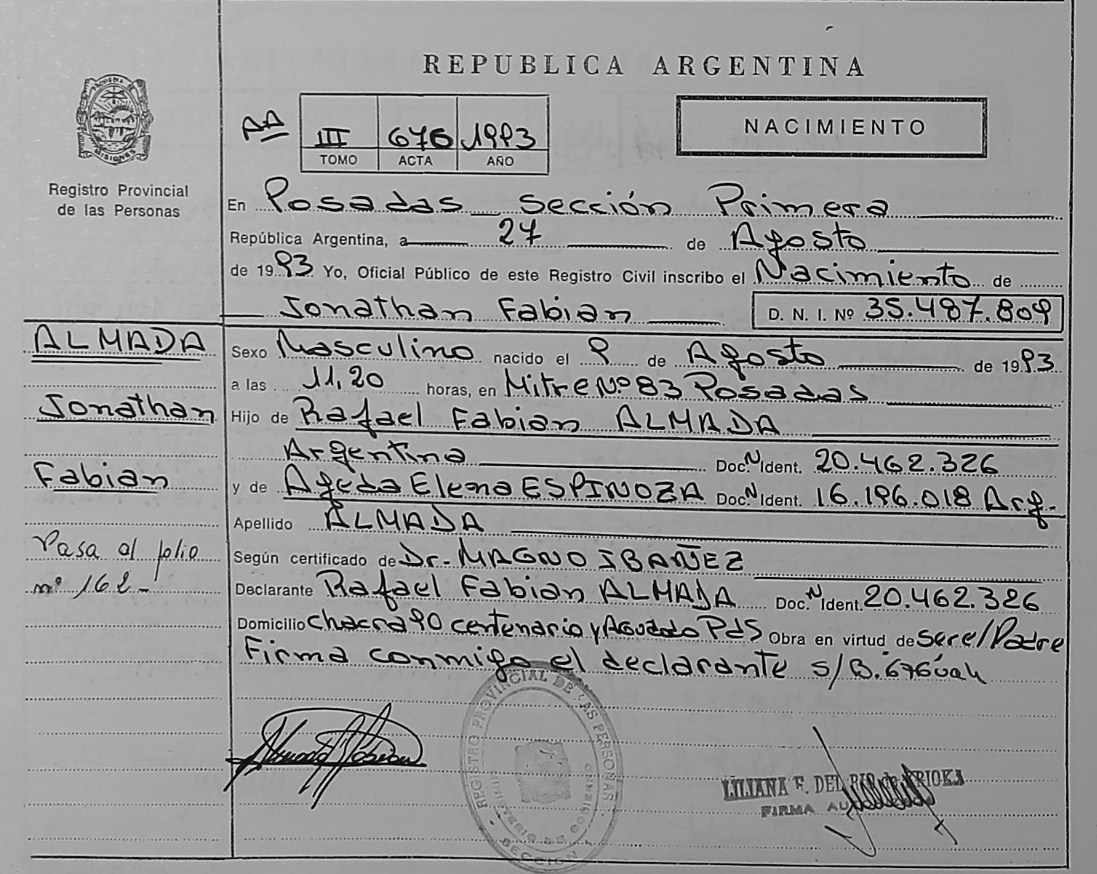 REPUBLICA ARGENTINA
MISIONES
Registro Provincial
de las Personas
AA III 676 1993
TOMO ACTA AÑO
NACIMIENTO
En Posadas Sección Primera
República Argentina, a 27 de Agosto
de 1993 Yo, Oficial Público de este Registro Civil inscribo el Nacimiento de
Jonathan Fabian D. N. I. Nº 35.487.809
ALMADA
Jonathan
Fabian
Pasa al folio
nº 162-
Sexo Masculino nacido el 9 de Agosto de 1993
a las 11,20 horas, en Mitre Nº 83 Posadas
Hijo de Rafael Fabian ALMADA
Argentina Doc. N Ident. 20.462.326
y de Ageda Elena ESPINOZA Doc. N Ident. 16.196.018 Arg.
Apellido ALMADA
Según certificado de Dr. MAGNO IBAÑEZ
Declarante Rafael Fabian ALMADA Doc. N Ident. 20.462.326
Domicilio chacra 90 centenario y Aguado Pds Obra en virtud de Ser el/Padre
Firma conmigo el declarante s/B. 676
REGISTRO PROVINCIAL DE LAS PERSONAS
SECCION 1
LILIANA F. DEL
FIRMA